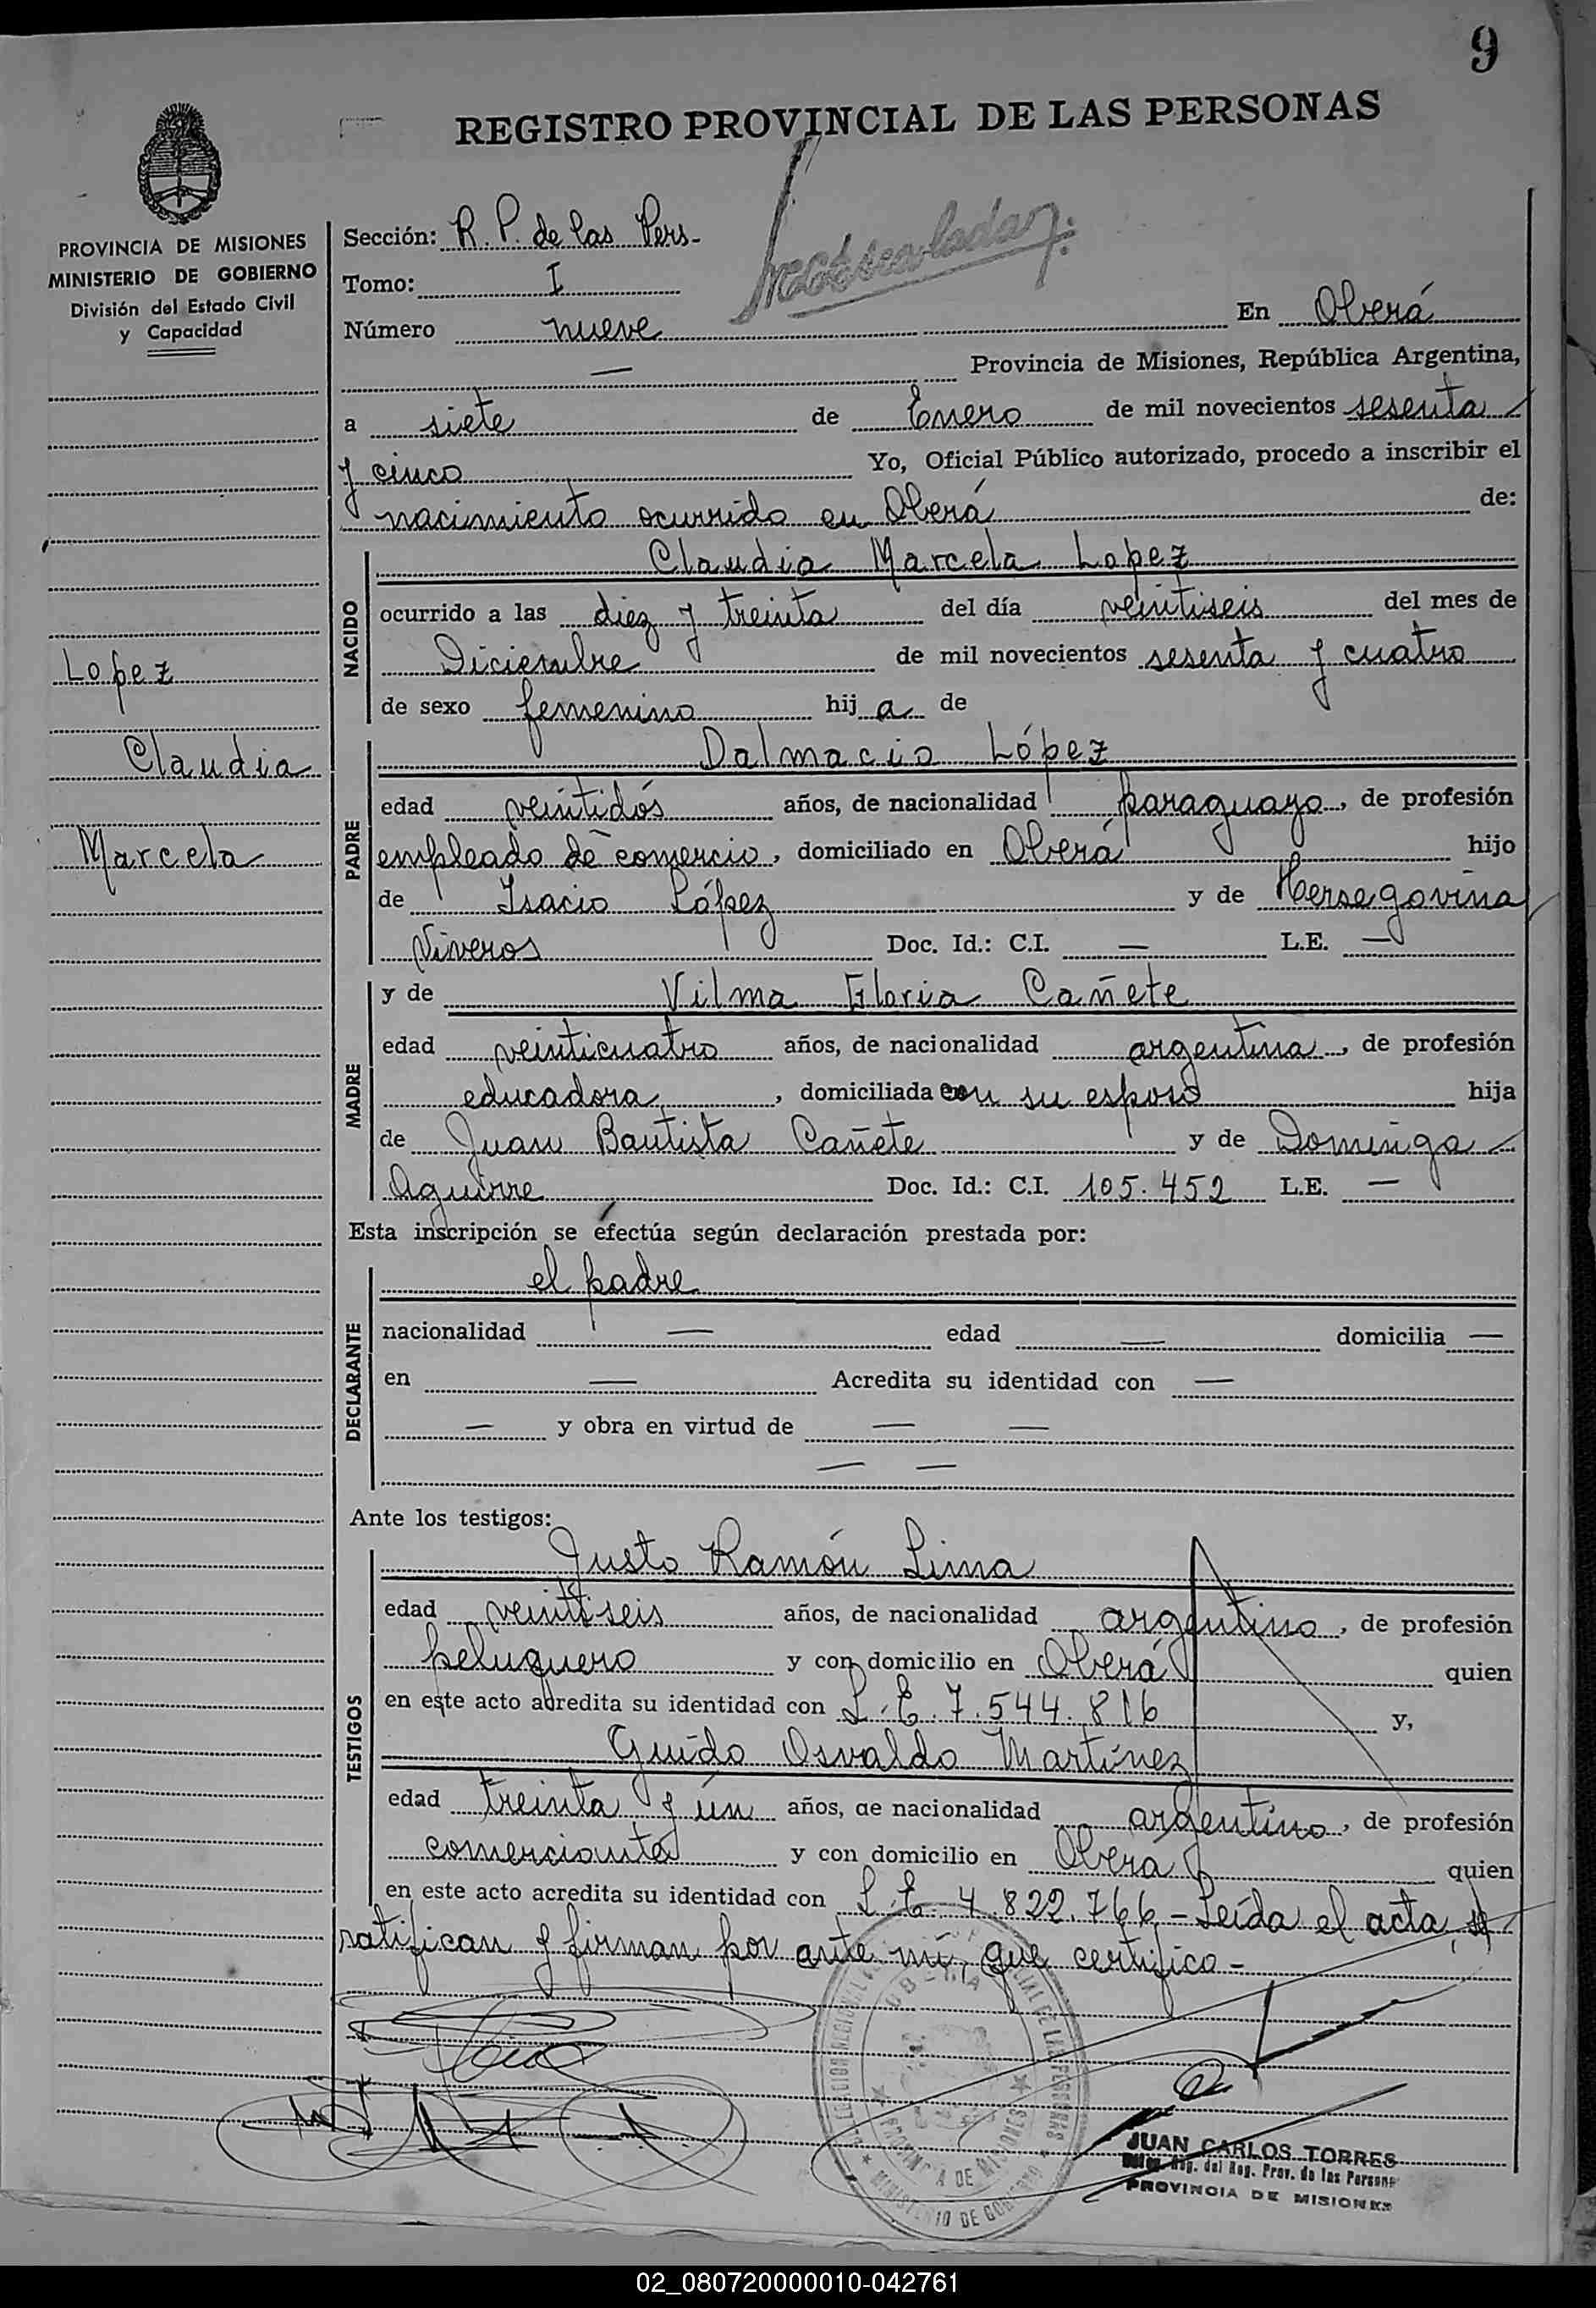 9
REGISTRO PROVINCIAL DE LAS PERSONAS
PROVINCIA DE MISIONES
MINISTERIO DE GOBIERNO
División del Estado Civil
y Capacidad
Sección: R. P. de las Pers-
Tomo: I
Número nueve En Oberá
— Provincia de Misiones, República Argentina,
a siete de Enero de mil novecientos sesenta
y cinco Yo, Oficial Público autorizado, procedo a inscribir el
nacimiento ocurrido en Oberá de:
NACIDO
Claudia Marcela Lopez
ocurrido a las diez y treinta del día veintiseis del mes de
Diciembre de mil novecientos sesenta y cuatro
de sexo femenino hij a de
Lopez
Claudia
Marcela
PADRE
Dalmacio López
edad veintidós años, de nacionalidad paraguayo, de profesión
empleado de comercio, domiciliado en Oberá hijo
de Isacio López y de Hersegovina
Viveros Doc. Id.: C.I. — L.E. —
MADRE
y de Vilma Gloria Cañete
edad veinticuatro años, de nacionalidad argentina, de profesión
educadora, domiciliada con su esposo hija
de Juan Bautista Cañete y de Dominga
Aguirre Doc. Id.: C.I. 105.452 L.E. —
Esta inscripción se efectúa según declaración prestada por:
DECLARANTE
el padre
nacionalidad — edad — domicilia —
en — Acredita su identidad con —
— y obra en virtud de — —
— —
Ante los testigos:
TESTIGOS
Justo Ramón Lima
edad veintiseis años, de nacionalidad argentino, de profesión
peluquero y con domicilio en Oberá quien
en este acto acredita su identidad con L.E. 7.544.816 y,
Guido Osvaldo Martínez
edad treinta y ún años, de nacionalidad argentino, de profesión
comerciante y con domicilio en Oberá quien
en este acto acredita su identidad con L.E. 4.822.766 - Leída el acta,
ratifican y firman por ante mí, que certifico -
PROVINCIA DE MISIONES
MINISTERIO DE GOBIERNO
JUAN CARLOS TORRES
Reg. del Reg. Prov. de las Personas
PROVINCIA DE MISIONES
02_080720000010-042761